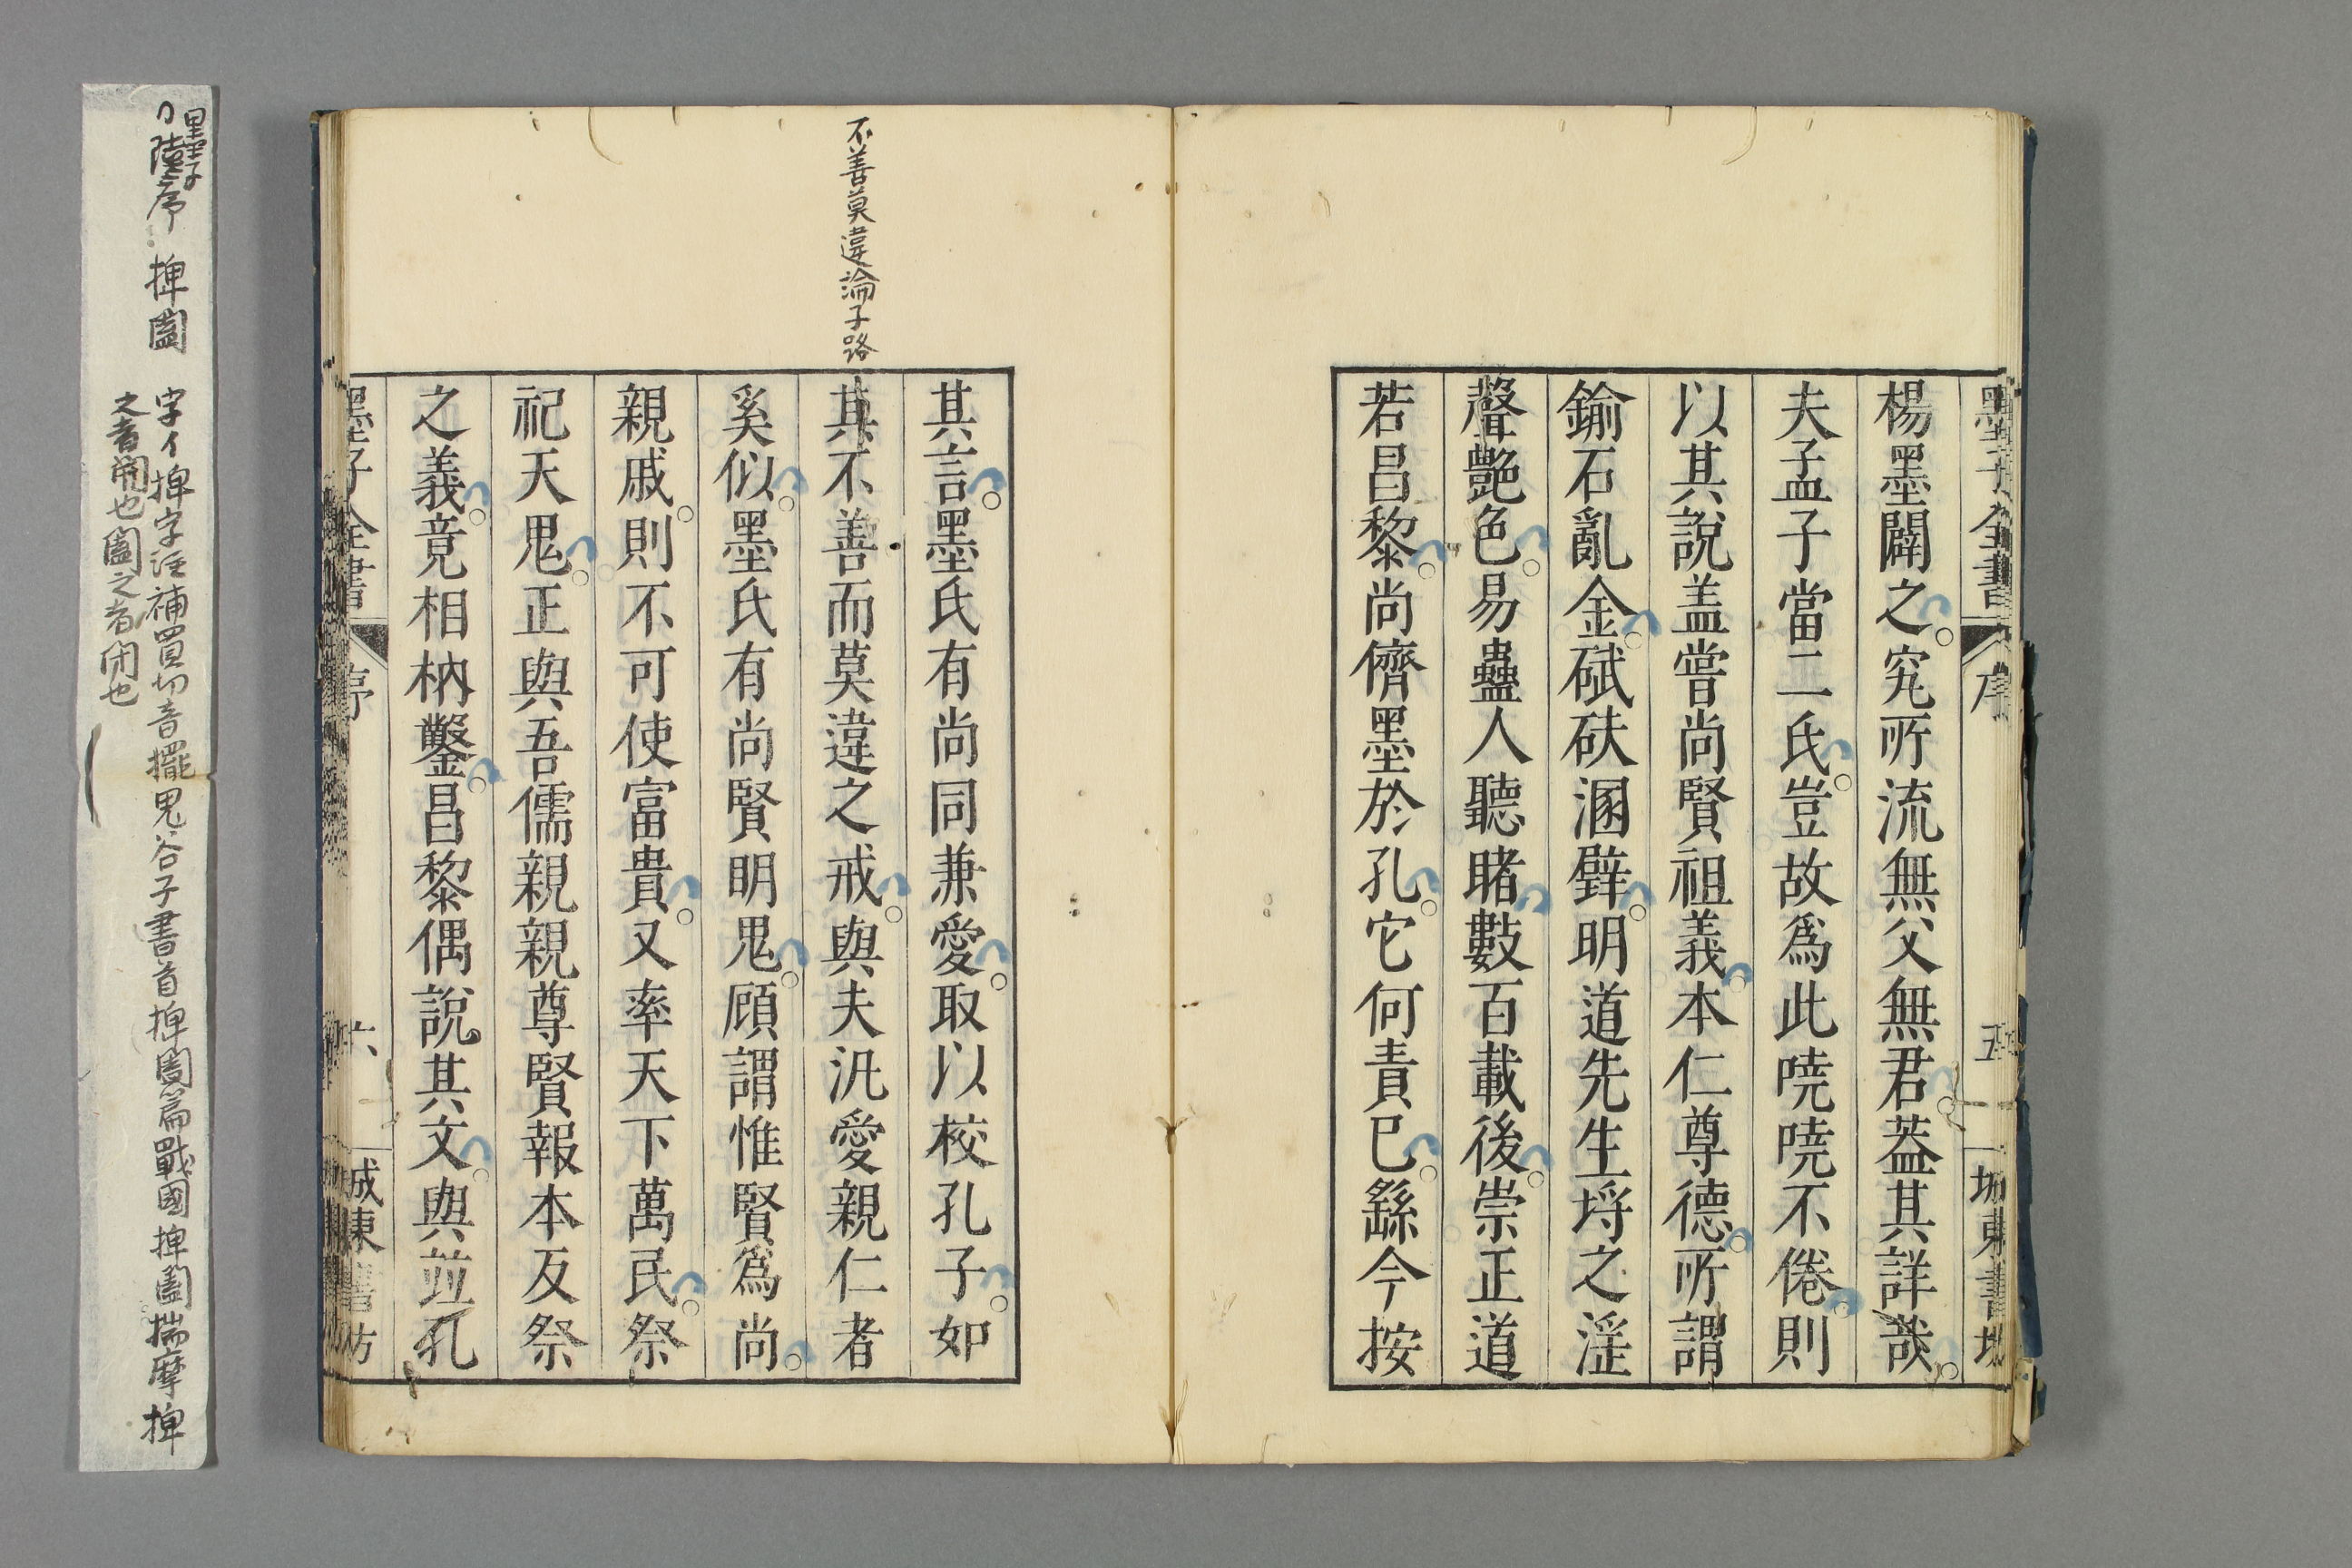 墨子全書 序 五 城東書坊
楊墨闢之。究所流無父無君。葢其詳哉。
夫孟子當二氏。豈故爲此嘵嘵不倦。則
以其說盖嘗尚賢祖義。本仁尊德。所謂
鍮石亂金。碔砆溷璧。明道先生埓之滛
聲艶色。易蠱人聽睹數百載後。崇正道
若昌黎。尚儕墨於孔。它何責已。繇今按
其言。墨氏有尚同兼愛。取以校孔子。如
其不善而莫違之戒。與夫汎愛親仁者
奚似。墨氏有尚賢明鬼。顧謂惟賢爲尚。
親戚。則不可使富貴。又率天下萬民。祭
祀天鬼。正與吾儒親親尊賢報本反祭
之義。竟相枘鑿。昌黎偶說其文。與並孔
墨子全書 序 六 城東書坊
不善莫違論子路
墨子
陸序 捭闔 字イ捭字注補買切音擺鬼谷子書首捭闔篇戰國捭闔揣摩捭
之者開也闔之者閉也